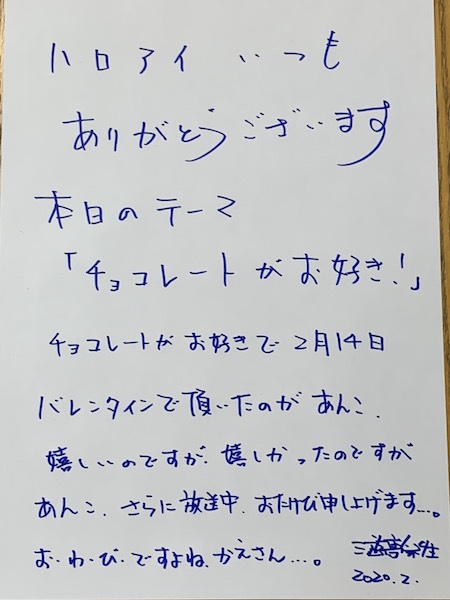 ハロアイ いつも
ありがとうございます
本日のテーマ
「チョコレートがお好き!」
チョコレートがお好きで2月14日
バレンタインで頂いたのがあんこ.
嬉しいのですが.嬉しかったのですが
あんこ.さらに放送中.おたけび申し上げます...。
お.わ.び.ですよね.かえさん...。
2020.2.